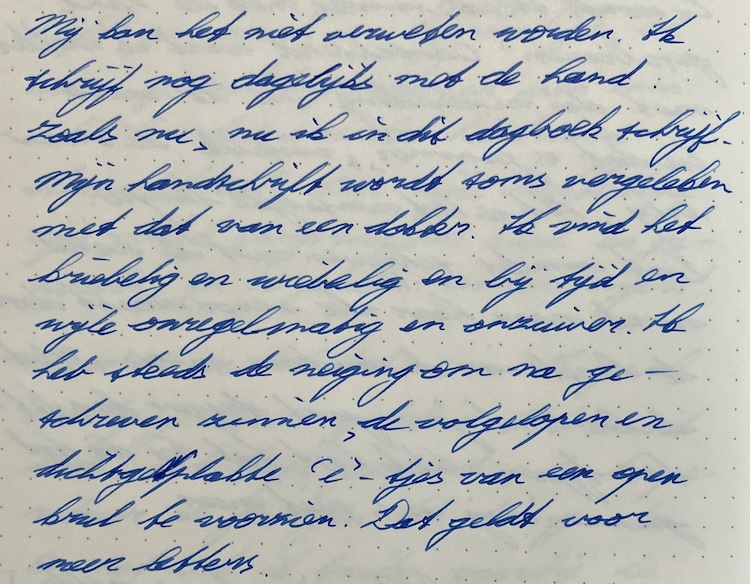 Mij kan het niet verweten worden. Ik
schrijf nog dagelijks met de hand.
Zoals nu, nu ik in dit dagboek schrijf.
Mijn handschrift wordt soms vergeleken
met dat van een dokter. Ik vind het
kriebelig en wiebelig en bij tijd en
wijle onregelmatig en onzuiver. Ik
heb steeds de neiging om na ge-
schreven zinnen, de volgelopen en
dichtgeplakte 'e'-tjes van een open
krul te voorzien. Dat geldt voor
meer letters